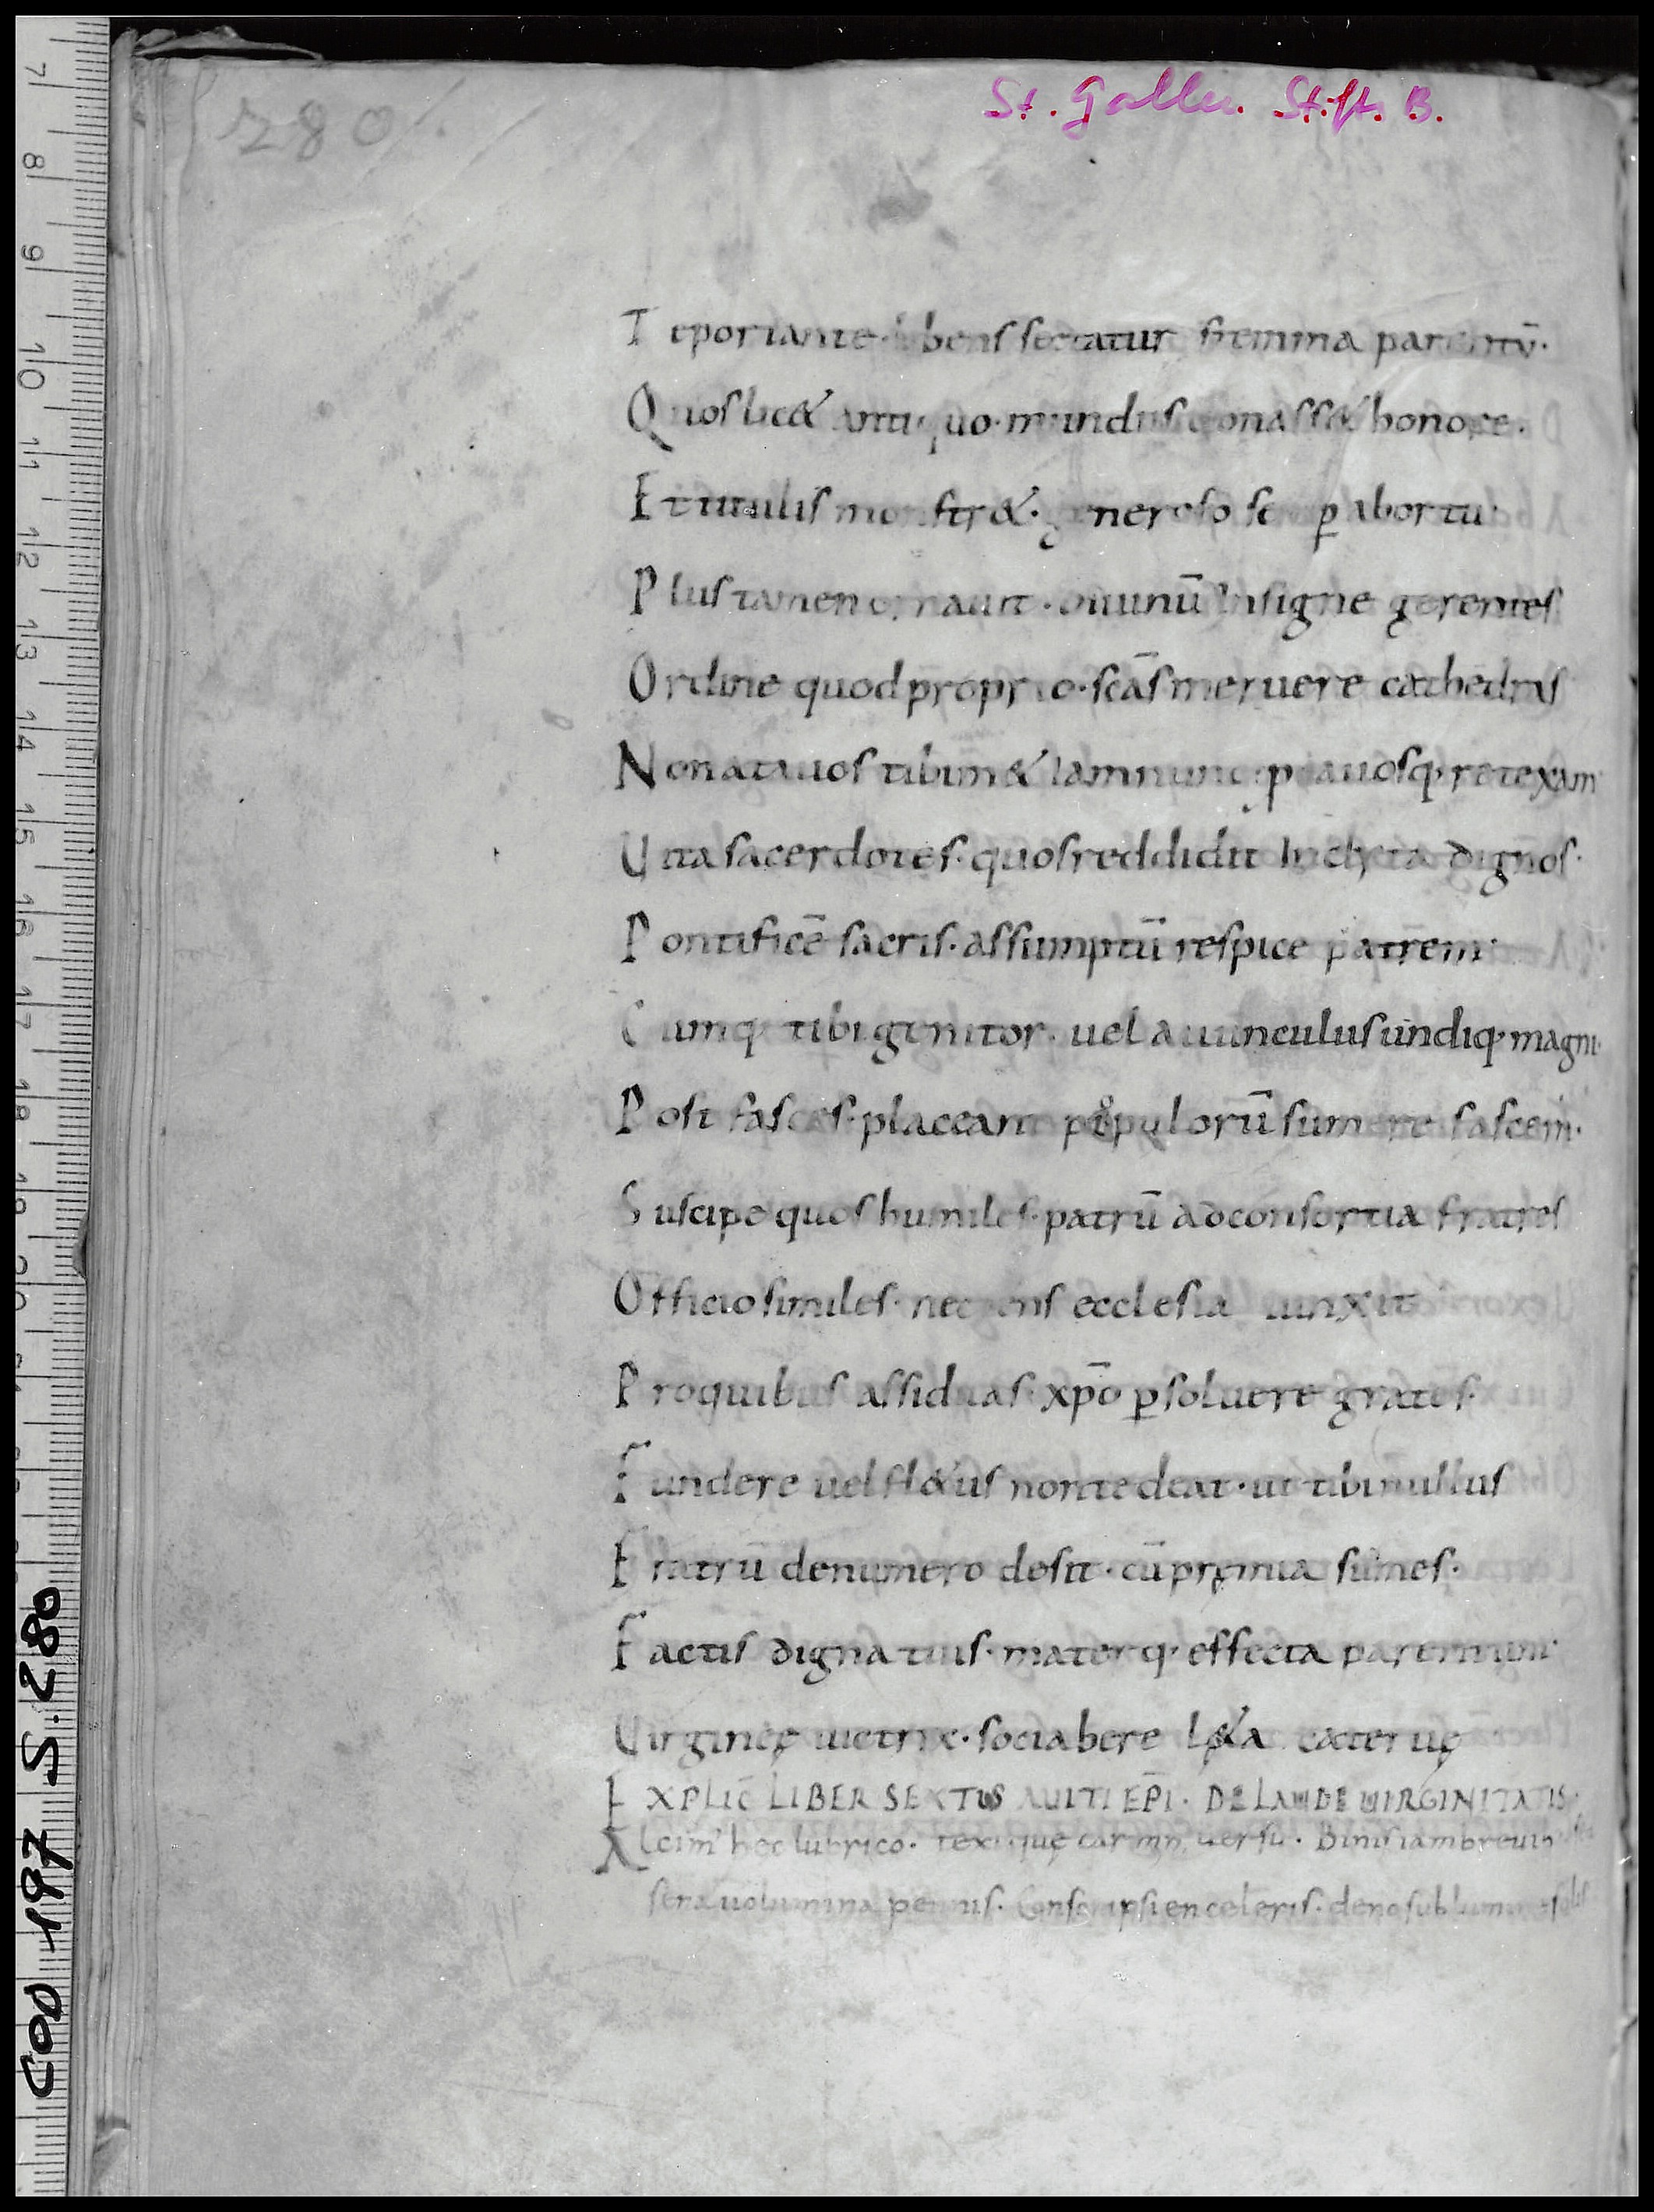 St. Gallen. Stift. B.
280
Teportante libens sectatur stemma parentū·
Quos lic& antiquo·mundus donass& honore.
Et titulis monstr&·generoso sē p abortu·
Plus tamen ornauit·diuinū Insigne gerentes
Ordine quod proprio·scās meruere cathedras
Non atauos tibim& iam nunc p auosq· retexam
Uita sacerdotes·quos reddidit Inclyta dignos·
Pontificē sacris·assumptū respice patrem·
Cumq· tibi genitor·uel auunculus undiq· magni·
Post fasces·placeant populorū sumere fascem·
Suscipe quos humiles·patrū ad consortia fratres
Officio similes·nec gens ecclesia iunxit
Pro quibus assiduas·xp̄o psoluere grates·
Fundere uel fl&us non tedeat·ut tibi nullus
Fratrū de numero desit·cū pręmia sumes·
Factis digna tuis·materq· effecta parentum·
Uirgineę uictrix·sociabere l&a cateruę
EXPLIC̄ LIBER SEXTUS AUITI EP̄I· DE LAUDE UIRGINITATIS·
Alcim' hec lubrico· texi que carmn uersu· Binis iam breuib
sena uolumina pennis· Conscripsi en celeris·deno sub lumine solis
COD 197 S. 280
7 8 9 10 11 12 13 14 15 16 17 18 19